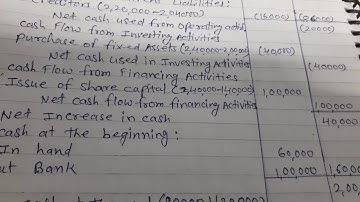 Creditors (2,20,000-2,04000) (16000) (26000)
Net cash used from Operating activi (20000)
cash Flow from Investing Activities
purchase of fixed Assets (240000-2,00000) (40,000)
Net cash used in Investing Activities (40000)
cash Flow from Financing Activities
Issue of share capital (2,40000-140000) 1,00,000
Net cash flow from financing Activities 100000
Net Increase in cash 40,000
cash at the beginning:
In hand 60,000
at Bank 1,00,000 1,60,00
2,00,